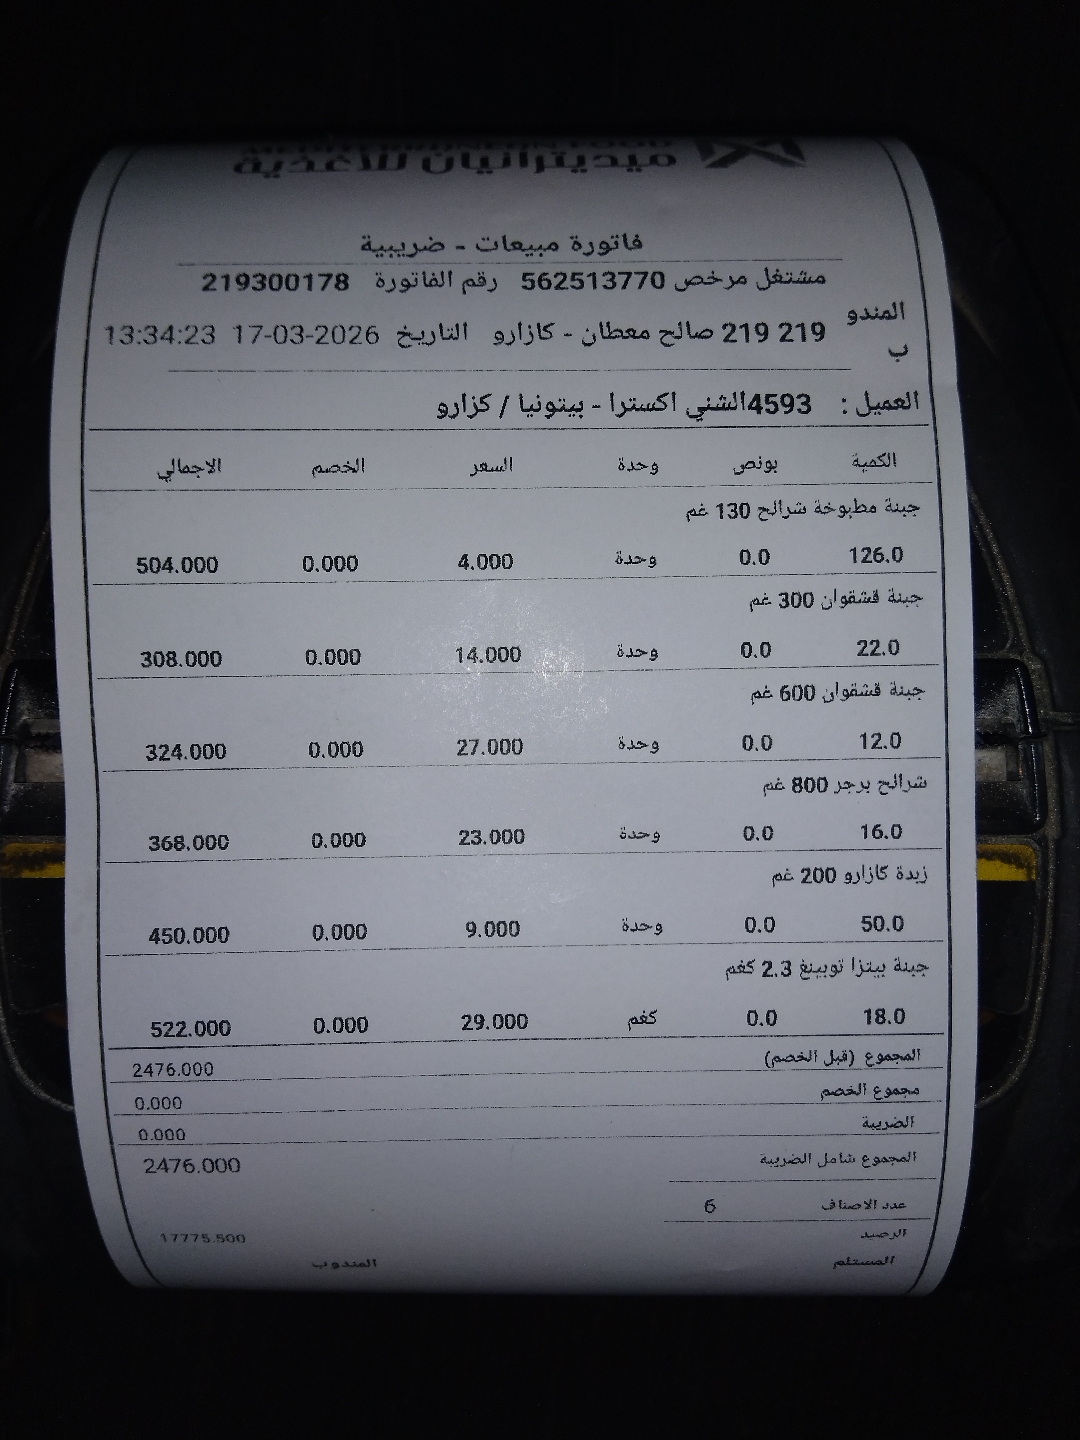 ميديترانيان للأغذية
فاتورة مبيعات - ضريبية
مشتغل مرخص 562513770 رقم الفاتورة 219300178
المندوب 219 219 صالح معطان - كازارو التاريخ 17-03-2026 13:34:23
العميل : 4593الشني اكسترا - بيتونيا / كزارو
الكمية بونص وحدة السعر الخصم الاجمالي
جبنة مطبوخة شرائح 130 غم
126.0 0.0 وحدة 4.000 0.000 504.000
جبنة قشقوان 300 غم
22.0 0.0 وحدة 14.000 0.000 308.000
جبنة قشقوان 600 غم
12.0 0.0 وحدة 27.000 0.000 324.000
شرائح برجر 800 غم
16.0 0.0 وحدة 23.000 0.000 368.000
زبدة كازارو 200 غم
50.0 0.0 وحدة 9.000 0.000 450.000
جبنة بيتزا توبينغ 2.3 كغم
18.0 0.0 كغم 29.000 0.000 522.000
المجموع (قبل الخصم) 2476.000
مجموع الخصم 0.000
الضريبة 0.000
المجموع شامل الضريبة 2476.000
عدد الاصناف 6
الرصيد 17775.500
المستلم المندوب